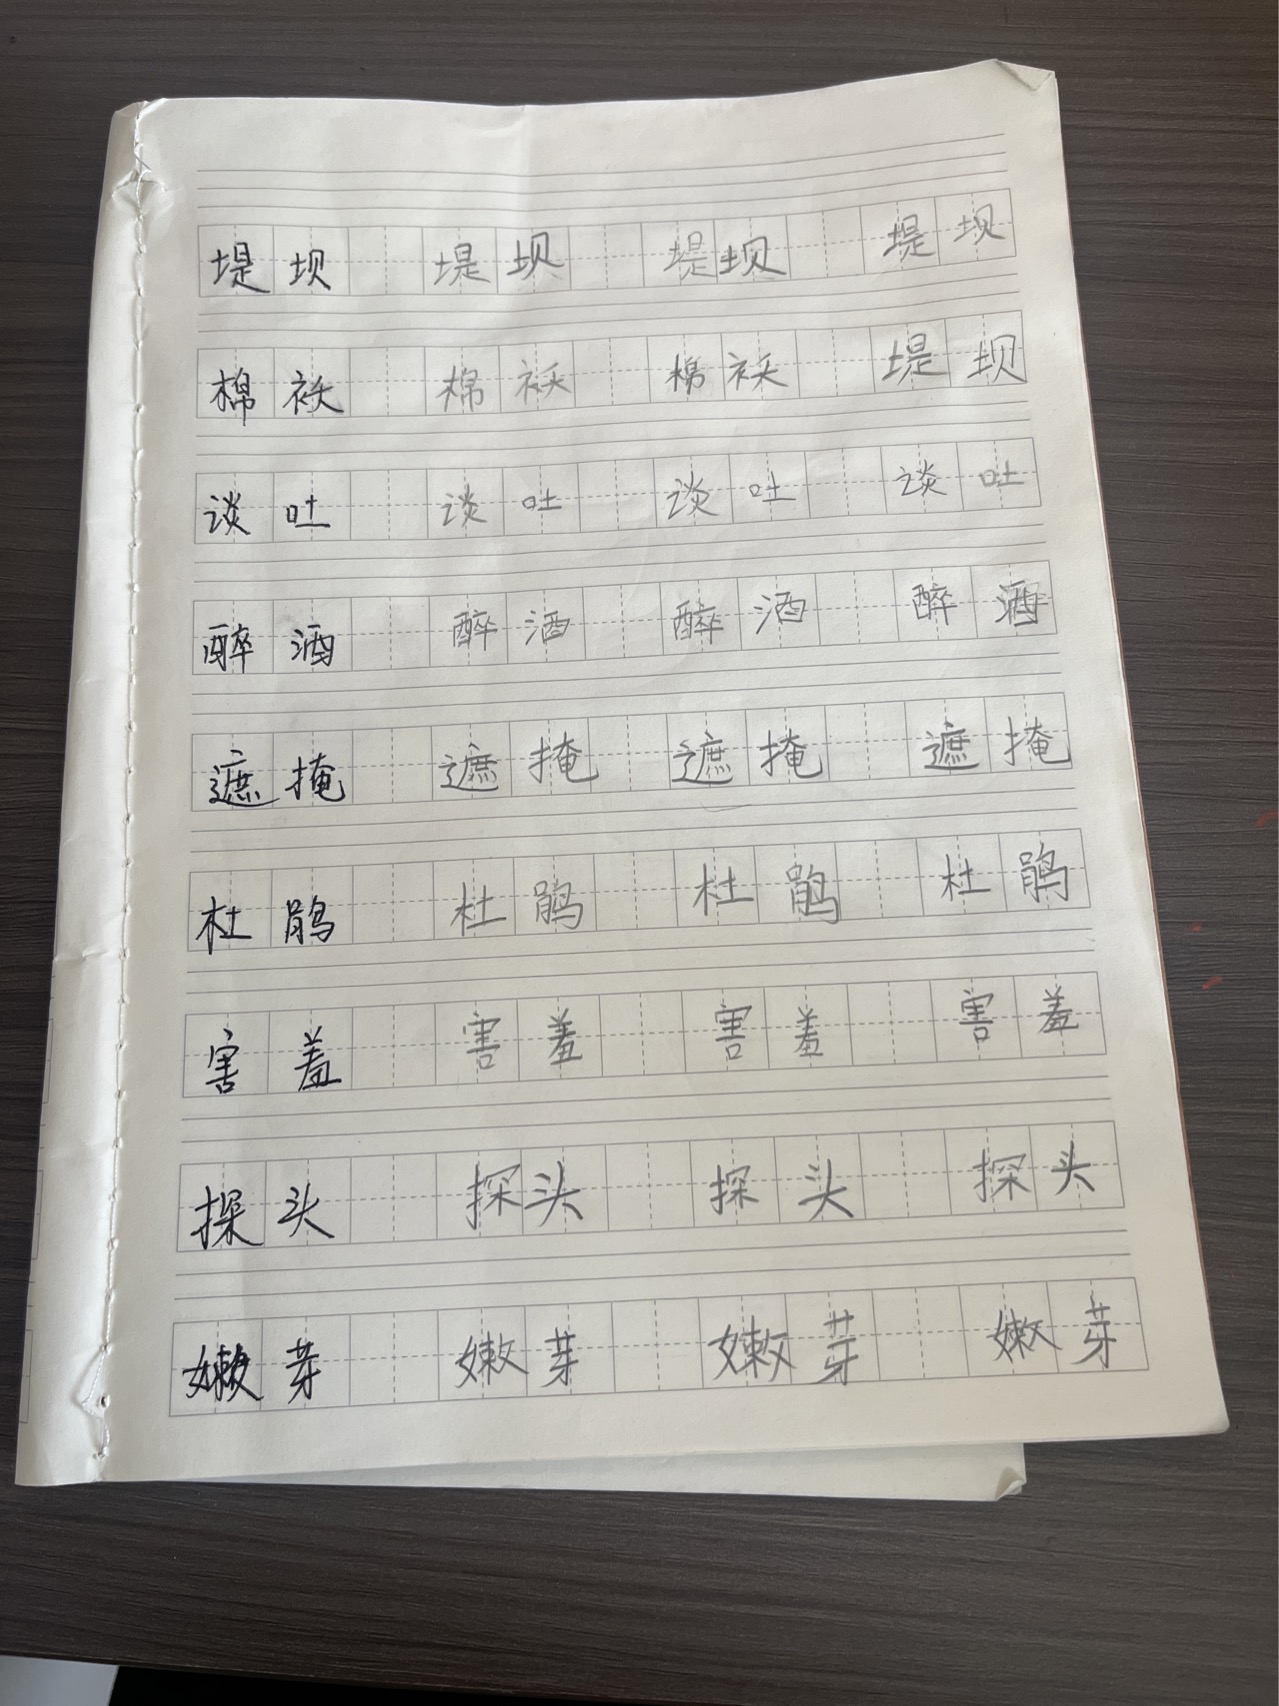 堤坝 堤坝 堤坝 堤坝
棉袄 棉袄 棉袄 堤坝
谈吐 谈吐 谈吐 谈吐
醉酒 醉酒 醉酒 醉酒
遮掩 遮掩 遮掩 遮掩
杜鹃 杜鹃 杜鹃 杜鹃
害羞 害羞 害羞 害羞
探头 探头 探头 探头
嫩芽 嫩芽 嫩芽 嫩芽